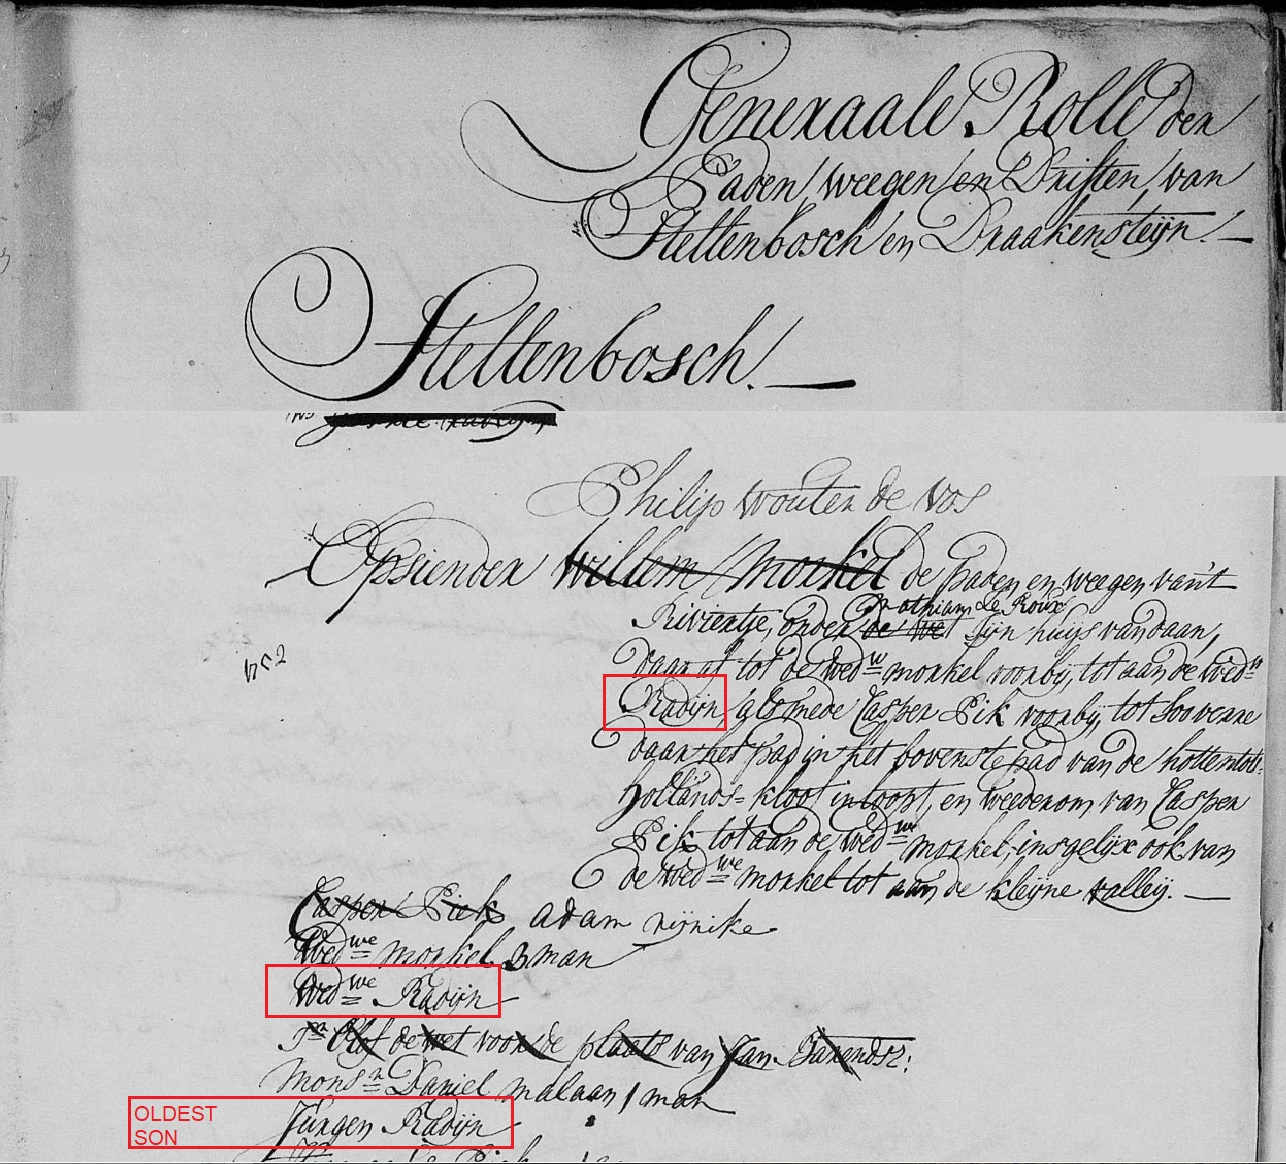 Generaale Rolle der
Paden, weegen, en Driften, van
Stellenbosch en Draakensteijn.
Stellenbosch.
Philip wouter de vos
Opsiender willem Morkel de paden en weegen van't
Le Roux
Riviertje, onder de wet sijn huijs van daan,
daar af tot de wed:w morkel voorbij, tot aan de wed:w
Radijn, als mede Casper Pik voorbij, tot soo verre
daar het pad in het bovenste pad van de hottentots
hollands-kloof in loopt, en weederom van Casper
Pik tot aan de wed:we morkel, insgelijx ook van
de wed:we morkel tot aan de kleijne valleij.
Casper Piek adam nijnike
Wed:we morkel 3 man
Wed:we Radijn
Sr Olof de wet voor de plaats van Jan Barendsz:
Monsr Daniel malaan 1 man
OLDEST
SON
Jurgen Radijn